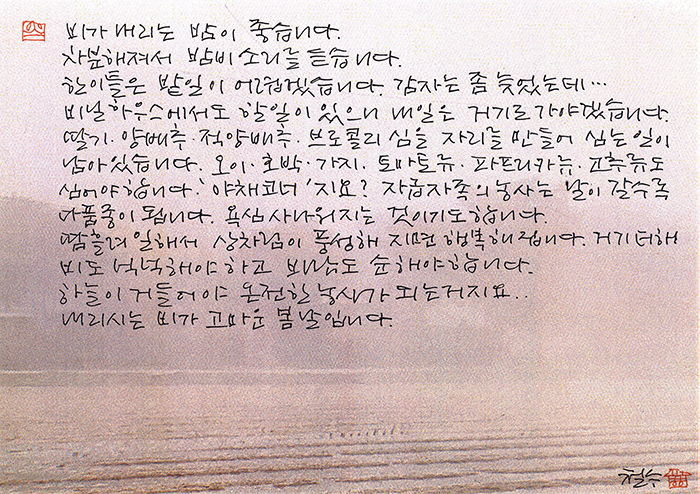 비가 내리는 밤이 좋습니다.
차분해져서 밤비 소리를 듣습니다.
한이틀은 밭일이 어렵겠습니다. 감자는 좀 늦었는데…
비닐하우스에서도 할일이 있으니 내일은 거기로 가야겠습니다.
딸기·양배추·적양배추·브로콜리 심을 자리를 만들어 심는 일이
남아있습니다. 오이·호박·가지·토마토류·파프리카류·고추류도
심어야합니다. '야채코너'지요? 자급자족의 농사는 날이 갈수록
다품종이 됩니다. 욕심 사나워지는 것이기도 합니다.
땀흘려 일해서 상차림이 풍성해 지면 행복해집니다. 거기 더해
비도 넉넉해야 하고 바람도 순해야 합니다.
하늘이 거들어야 온전한 농사가 되는거지요..
내리시는 비가 고마운 봄날입니다.
철수